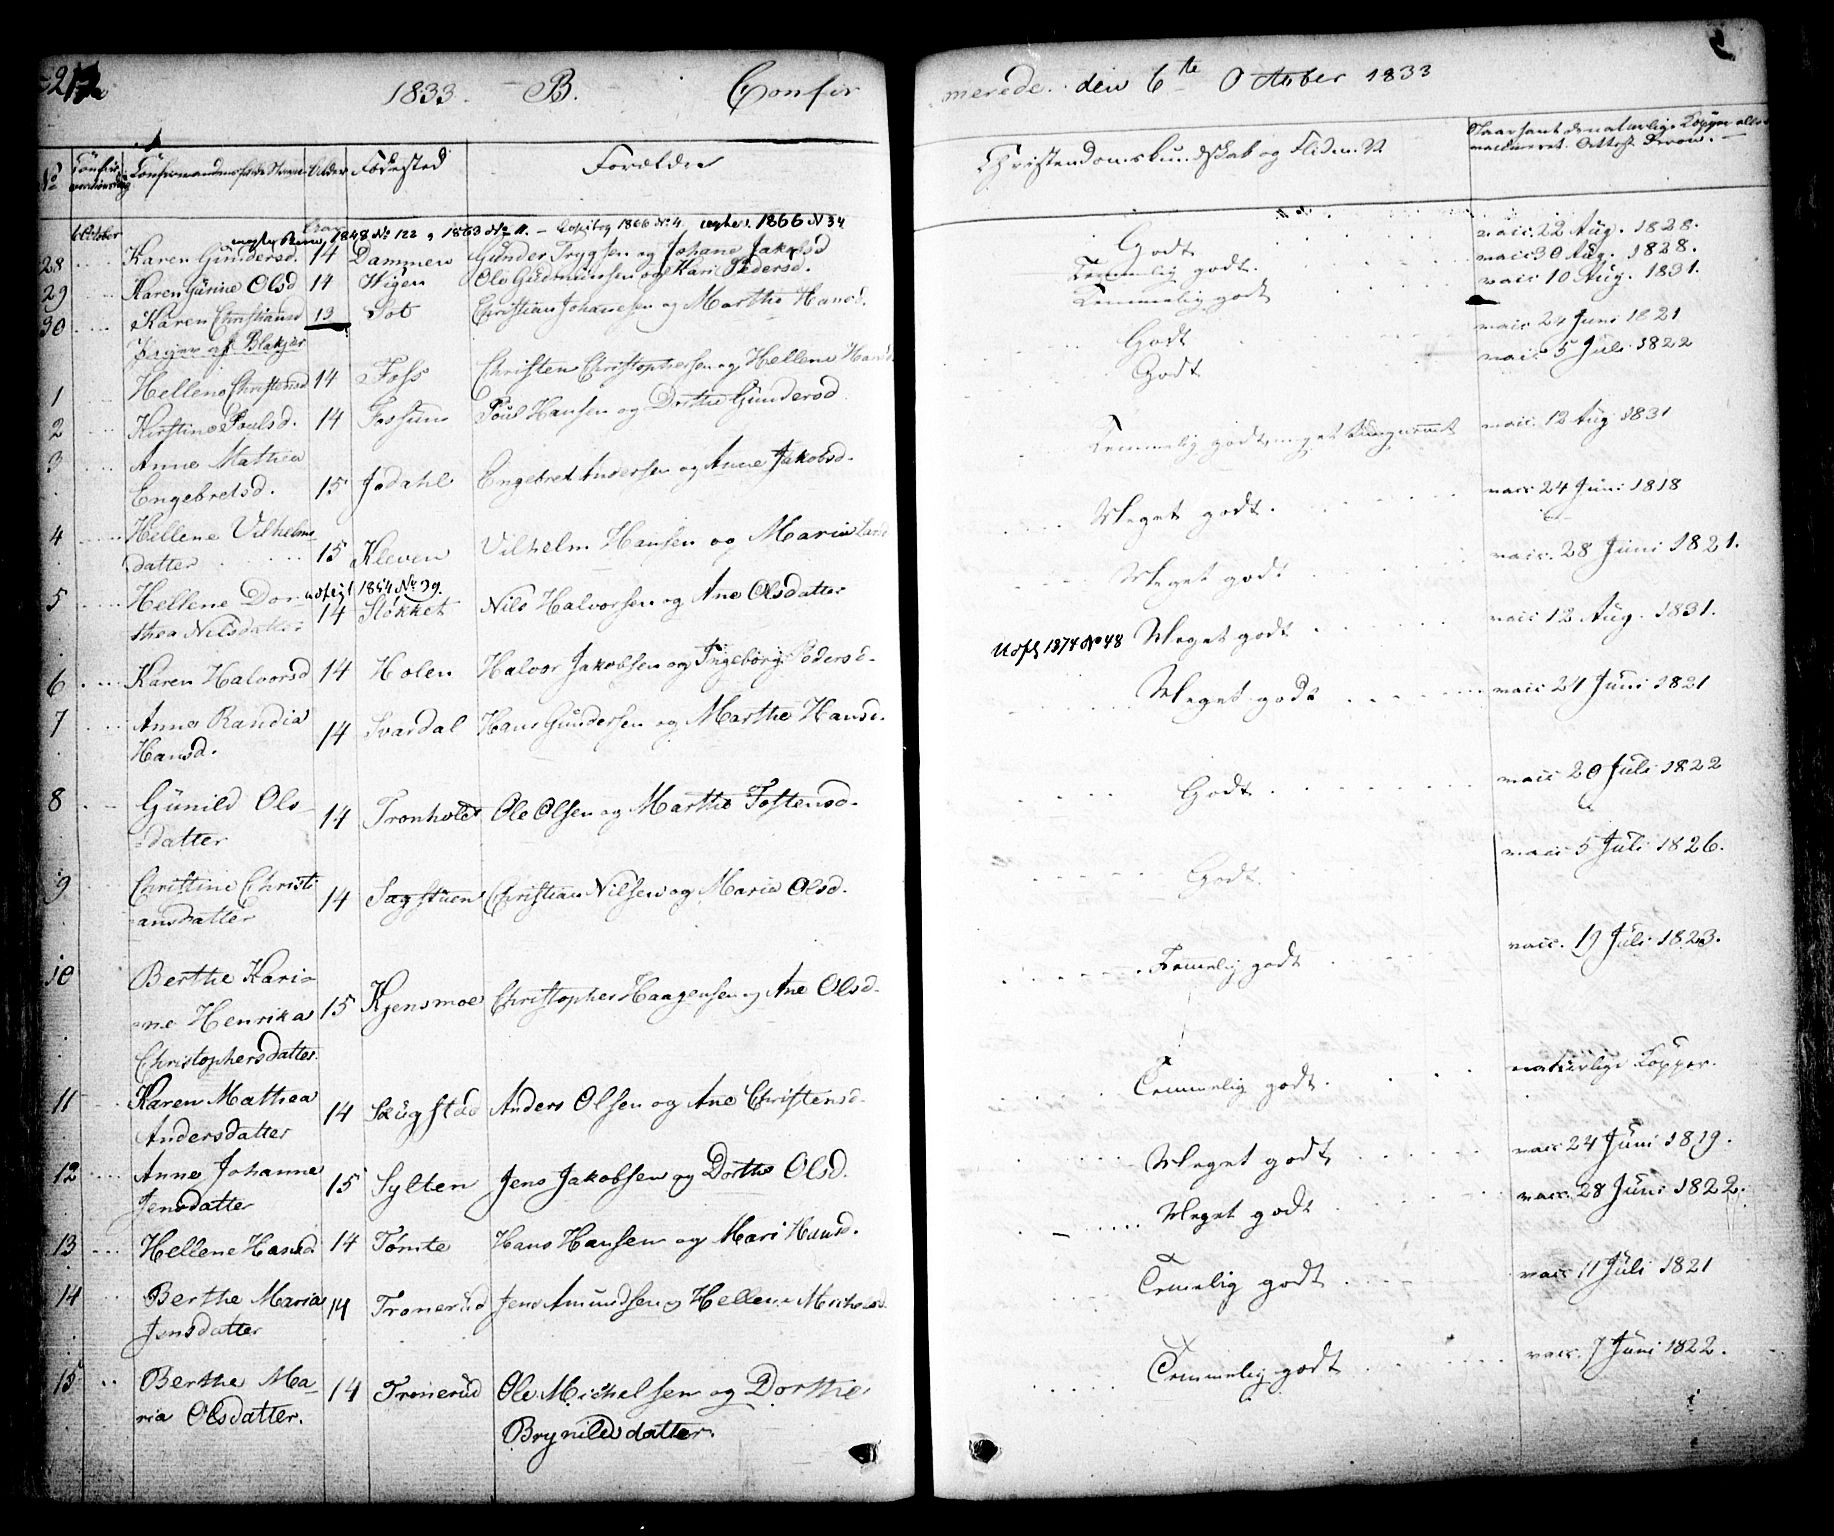 1833. B. Confir
merede. den 6te October 1833
No Confirmationsdag Confirmandens fulde Navn Alder Födested Forældre
Christendomskundskab og Flid m. v.
6 October
1848 No 122 1863 No 11. 1866 No 4 1866 N 34
28 Karen Gundersd. 14 Dammen Gunder Trygsen og Johane Jakobsd Godt vacc. 22 Aug. 1828.
29 Karen Gurine Olsd 14 Wigen Ole Gudmunsen og Kari Pedersd. Temmelig godt. vacc 30 Aug. 1828.
30 Karen Christiansd 13 Sot Christian Johanesen og Marthe Hansd. Temmelig godt vacc 10 Aug. 1831.
Piger af Blakjer
1 Hellene Christensd 14 Foss Christen Christophersen og Hellene Hansd Godt vacc 24 Juni 1821
2 Kirstine Poulsd. 14 Fossum Poul Hansen og Dorthe Gundersd. Godt vacc 5 Juli 1822
3 Anne Mathea
Engebretsd. 15 Jodahl Engebret Andersen og Anne Jakobsd. Temmelig godt, meget vacc. 12 Aug 1831
4 Hellene Vilhelms
datter 15 Kleven Vilhelm Hansen og Maria Meget godt. vacc 24 Juni 1818
5 Hellene Dor- 1854 No 39.
thea Nilsdatter 14 Stokket Nils Halvorsen og Ane Olsdatter Meget godt vacc. 28 Juni 1821.
6 Karen Halvorsd 14 Holen Halvor Jakobsen og Ingeborg Pedersd. 1874 No 48 Meget godt vacc 12 Aug. 1831.
7 Anne Randia
Hansd. 14 Svardal Hans Gundersen og Marthe Hansd. Meget godt vacc 24 Juni 1821
8 Gunild Ols-
datter 14 Tronholet Ole Olsen og Marthe Tostensd. Godt. vacc 20 Juli 1822
9 Christine Christi
ansdatter 14 Sagstuen Christian Nilsen og Maria Olsd. Godt. vacc 5 Juli 1826.
10 Berthe Kari-
ne Henrika 15 Kjensmoe Christopher Haagensen og Ane Olsd. Temelig godt vacc. 19 Juli 1823.
Christophersdatter.
11 Karen Mathea
Andersdatter 14 Skugstad Anders Olsen og Ane Christensd. Temmelig godt. naturlige Kopper.
12 Anne Johanne
Jensdatter 15 Sylten Jens Jakobsen og Dorthe Olsd. Meget godt vacc 24 Juni 1819.
13 Hellene Hansd 14 Tömte Hans Hansen og Mari Hansd. Meget godt vacc. 28 Juni 1822.
14 Berthe Maria
Jensdatter 14 Tronerud Jens Amundsen og Hellene Temelig godt vacc 11 Juli 1821
15 Berthe Ma-
ria Olsdatter. 14 Tronerud Ole Michelsen og Dorthe Temmelig godt vacc. 7 Juni 1822.
Brynildsdatter.